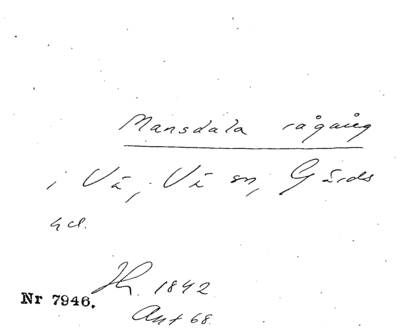 Mansdala rågång
i Vä, Vä sn, Gärds
hd.
Nr 7946.
1842
Ant 68.